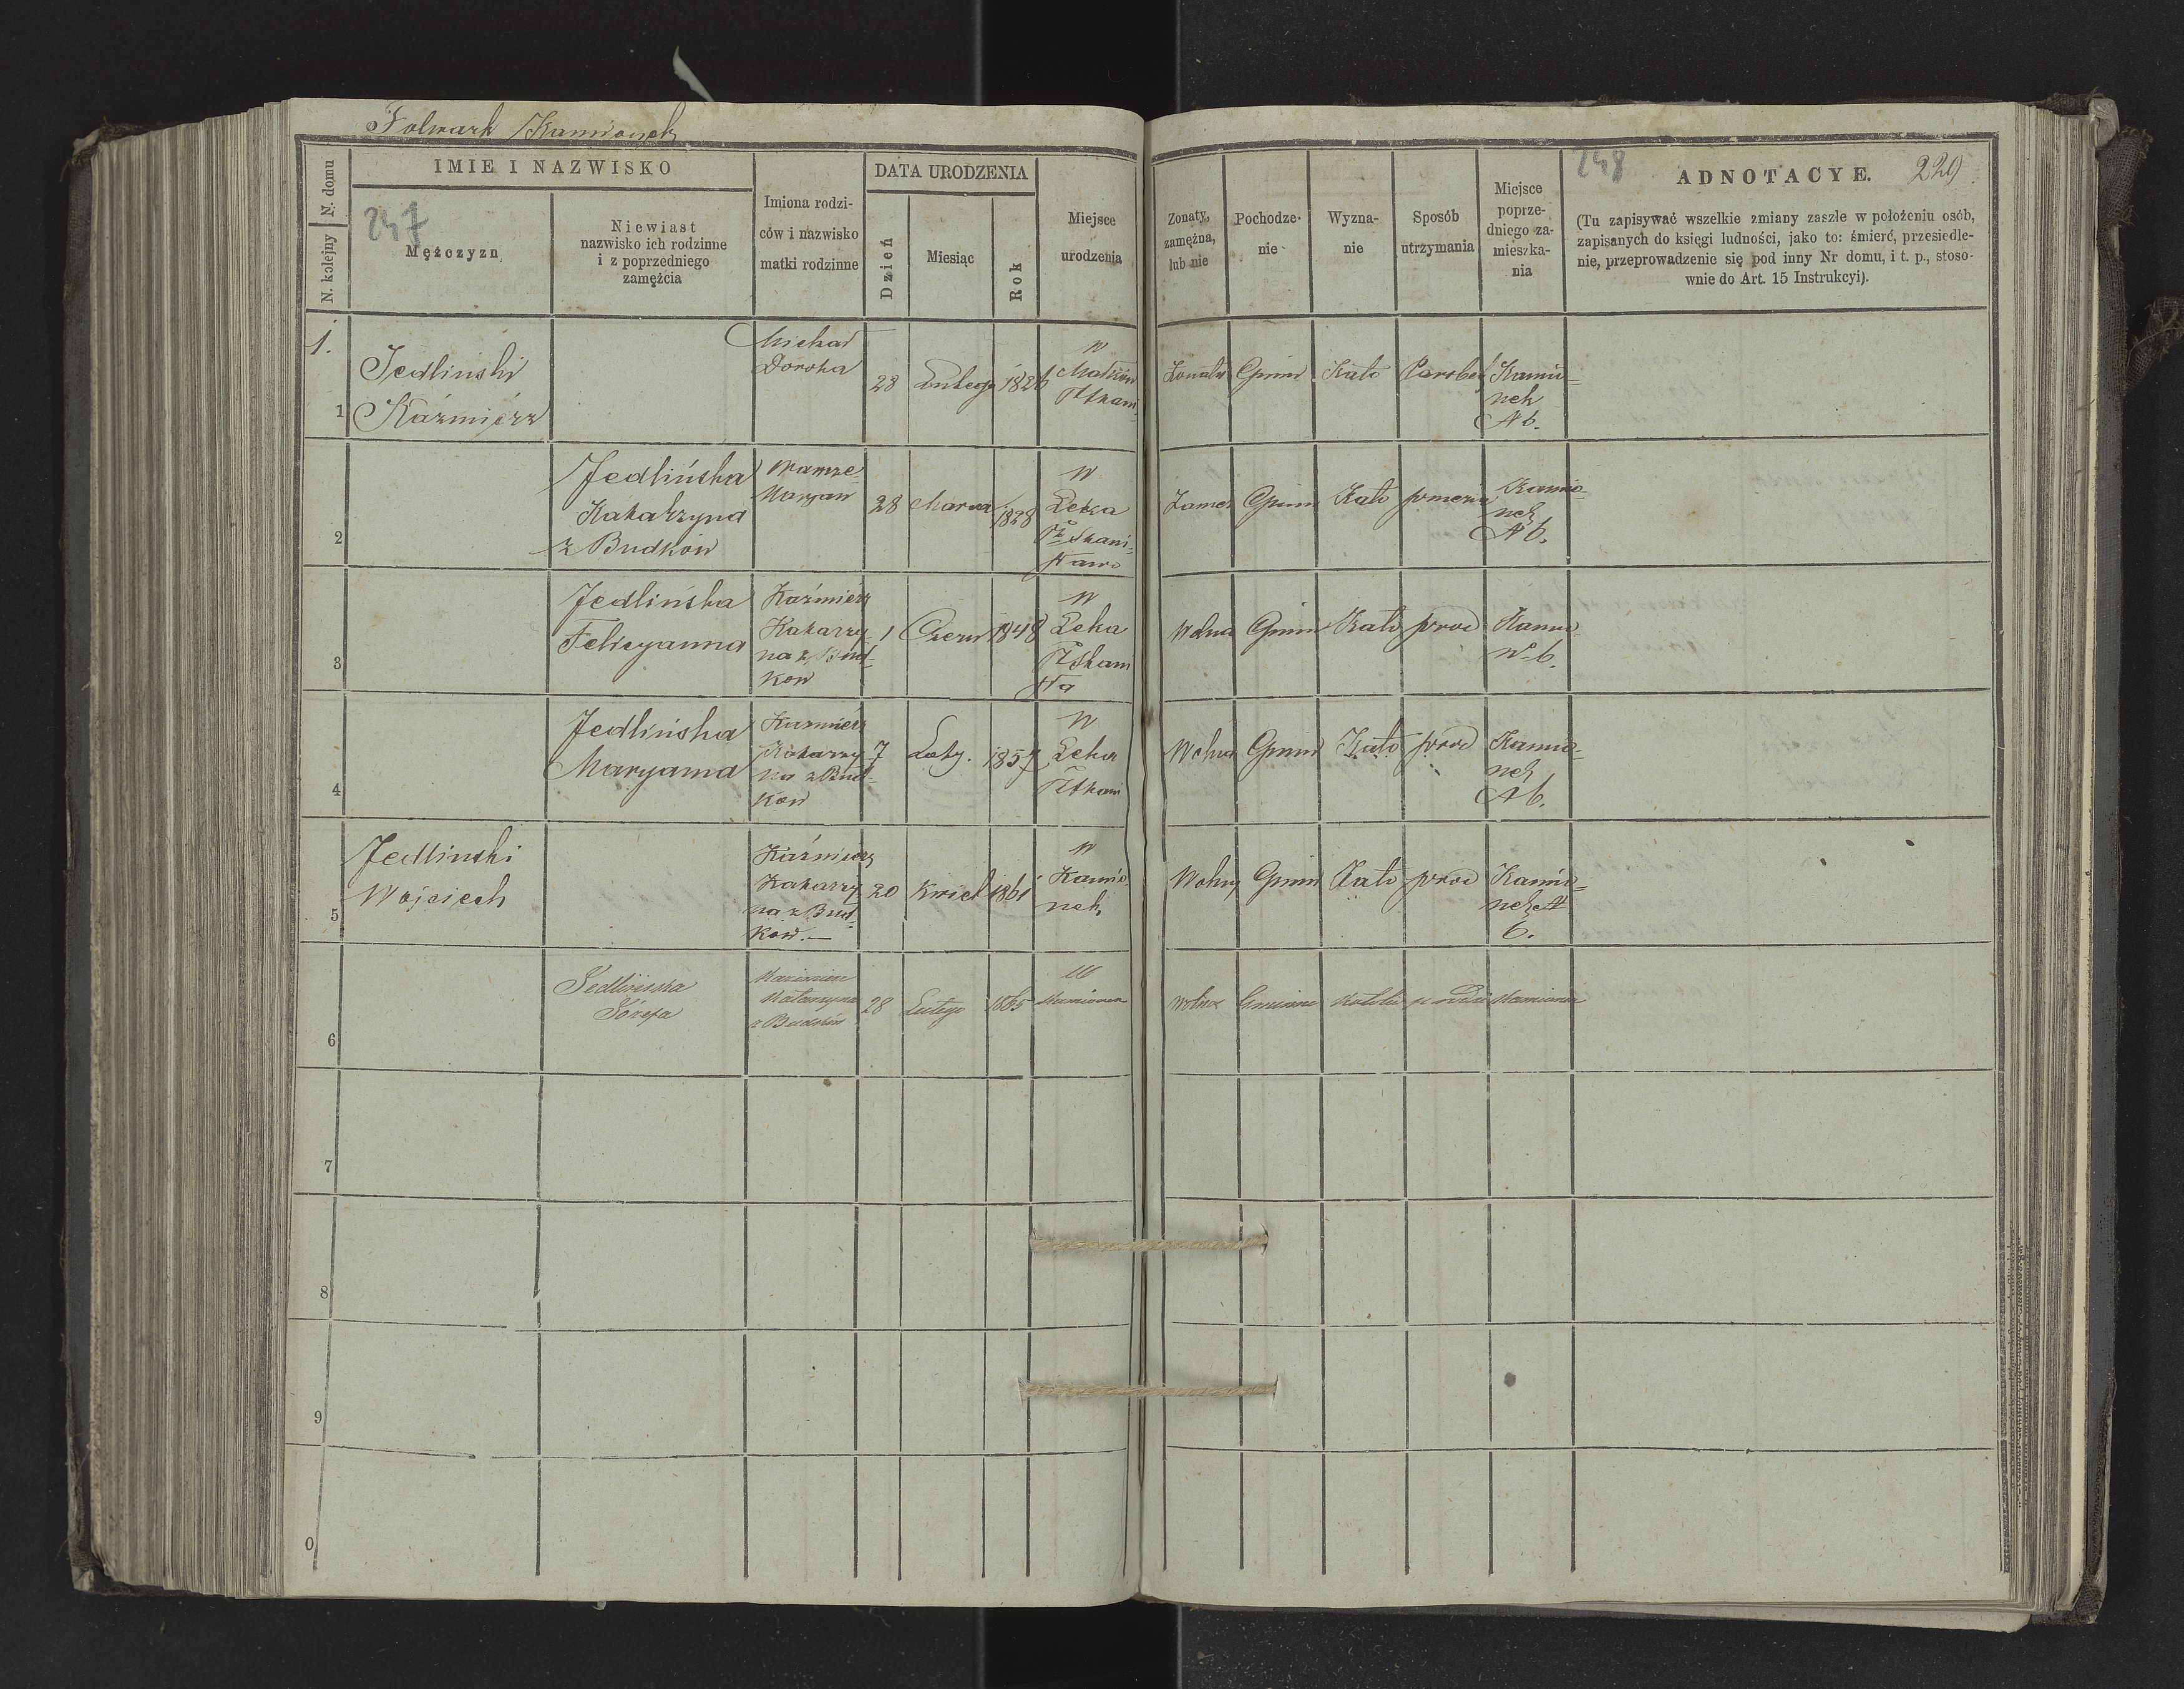 Folwark Kamionek
N. domu
N. kolejny
IMIE I NAZWISKO
247
Mężczyzn
Niewiast
nazwisko ich rodzinne
i z poprzedniego
zamęźcia
Imiona rodzi-
ców i nazwisko
matki rodzinne
DATA URODZENIA
Dzień
Miesiąc
Rok
Miejsce
urodzenia
Zonaty,
zamężna,
lub nie
Pochodze-
nie
Wyzna-
nie
Sposób
utrzymania
Miejsce
poprze-
dniego za-
mieszka-
nia
248
ADNOTACYE.
229
(Tu zapisywać wszelkie zmiany zaszłe w położeniu osób,
zapisanych do księgi ludności, jako to: śmierć, przesiedle-
nie, przeprowadzenie się pod inny Nr domu, i t. p., stoso-
wnie do Art. 15 Instrukcyi).
1.
1
Jedlinski
Kaźmierz
Michał
Dorota
28
Lutego
1826
w
Żonaty
Gmin
Kato
Parobek
Kamio=
nek
N 6.
2
Jedlińska
Katarzyna
z Budków
Wawrze
Maryan
28
Marca
1828
w
Zamęż
Gmin
Kato
Kamio=
nek
N 6.
3
Jedlińska
Felicyanna
Kaźmierz
Katarzy-
na z Bud-
kow
1
Czerw
1848
w
Wolna
Gmin
Kato
Kamio
No 6.
4
Jedlińska
Maryanna
Kazmierz
Katarzy-
na z Bud-
kow
7
Luty.
1857
w
Wolna
Gmin
Kato
Kamio=
nek
N 6.
5
Jedlinski
Wojciech
Kaźmierz
Katarzy
na z Bud
kow.—
20
Kwiet
1861
w
Kamio
nek
Wolny
Gmin
Kato
Kamio=
nek N
6.
6
Jedlińska
Józefa
Kazimierz
Katarzyna
z Budków
28
Lutego
1865
w
Kamionek
wolna
Gminne
Katolic
Kamionek
7
8
9
0